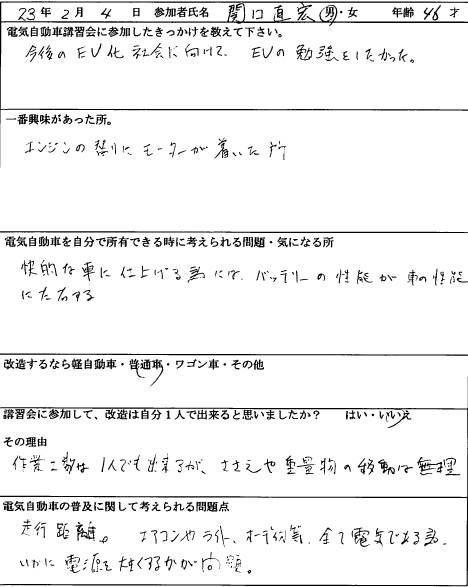 23年2月4日 参加者氏名 関口直宏 男・女 年齢46才
電気自動車講習会に参加したきっかけを教えて下さい。
今後のEV化社会に向けて、EVの勉強をしたかった。
一番興味があった所。
エンジンの替りにモーターが着いた所
電気自動車を自分で所有できる時に考えられる問題・気になる所
快的な車に仕上げる為には、バッテリーの性能が車の性能
に左右する
改造するなら軽自動車・普通車・ワゴン車・その他
講習会に参加して、改造は自分1人で出来ると思いましたか? はい・いいえ
その理由
作業工数は1人でも出来るが、ささえや重量物の移動は無理
電気自動車の普及に関して考えられる問題点
走行距離。エアコンやライト、オーディオ等、全て電気である為、
いかに電源を大きくするかが問題。